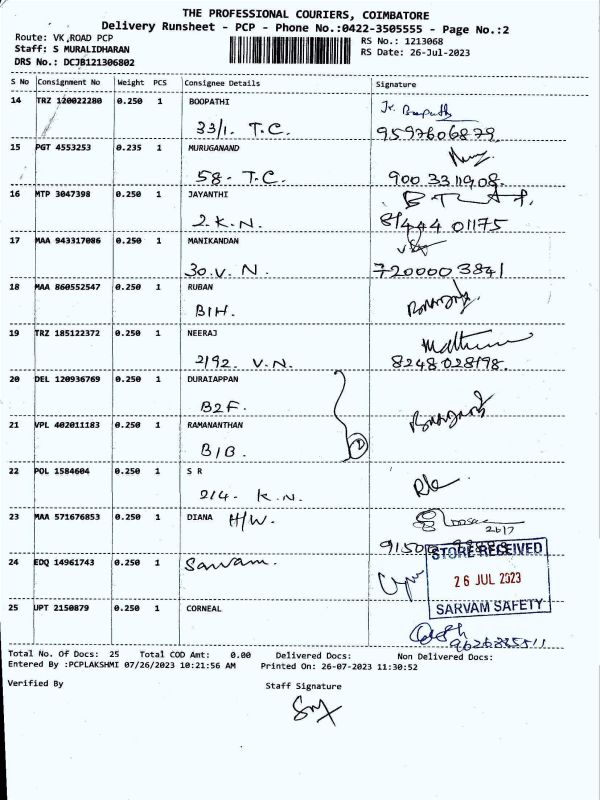 THE PROFESSIONAL COURIERS, COIMBATORE
Delivery Runsheet - PCP - Phone No.:0422-3505555 - Page No.:2
Route: VK,ROAD PCP
RS No.: 1213068
Staff: S MURALIDHARAN
RS Date: 26-Jul-2023
DRS No.: DCJB121306802
S No Consignment No Weight PCS Consignee Details Signature
14 TRZ 120022280 0.250 1 BOOPATHI
33/1. T.C. 9597606879
15 PGT 4553253 0.235 1 MURUGANAND
58- T.C. 900 3311908.
16 MTP 3047398 0.250 1 JAYANTHI
2. K.N. 81444 01175
17 MAA 943317086 0.250 1 MANIKANDAN
30. V. N. 720000 3841
18 MAA 860552547 0.250 1 RUBAN
B1H.
19 TRZ 185122372 0.250 1 NEERAJ
2192. V.N. 8248028198.
20 DEL 120936769 0.250 1 DURAIAPPAN
B2F.
21 VPL 402011183 0.250 1 RAMANANTHAN
B1B.
22 POL 1584604 0.250 1 S R
214. K.N.
23 MAA 571676853 0.250 1 DIANA H/W.
26/7
24 EDQ 14961743 0.250 1 Sarvam.
STORE RECEIVED
26 JUL 2023
SARVAM SAFETY
25 UPT 2150879 0.250 1 CORNEAL
Total No. Of Docs: 25 Total COD Amt: 0.00 Delivered Docs: Non Delivered Docs:
Entered By :PCPLAKSHMI 07/26/2023 10:21:56 AM Printed On: 26-07-2023 11:30:52
Verified By Staff Signature